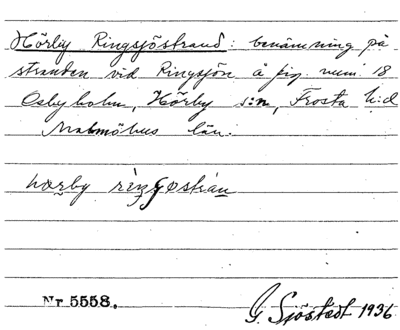 Hörby Ringsjöstrand: benämning på
stranden vid Ringsjön å fig. num 18
Osbyholm, Hörby s:n, Frosta h:d
Malmöhus län.
hørby
Nr 5558.
G. Sjöstedt 1936